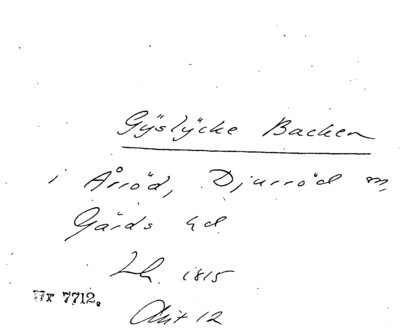 Gÿslÿcke Backen
i Årröd, Djurröd sn,
Gärds hd
Lh. 1815
Nr 7712.
Akt 12